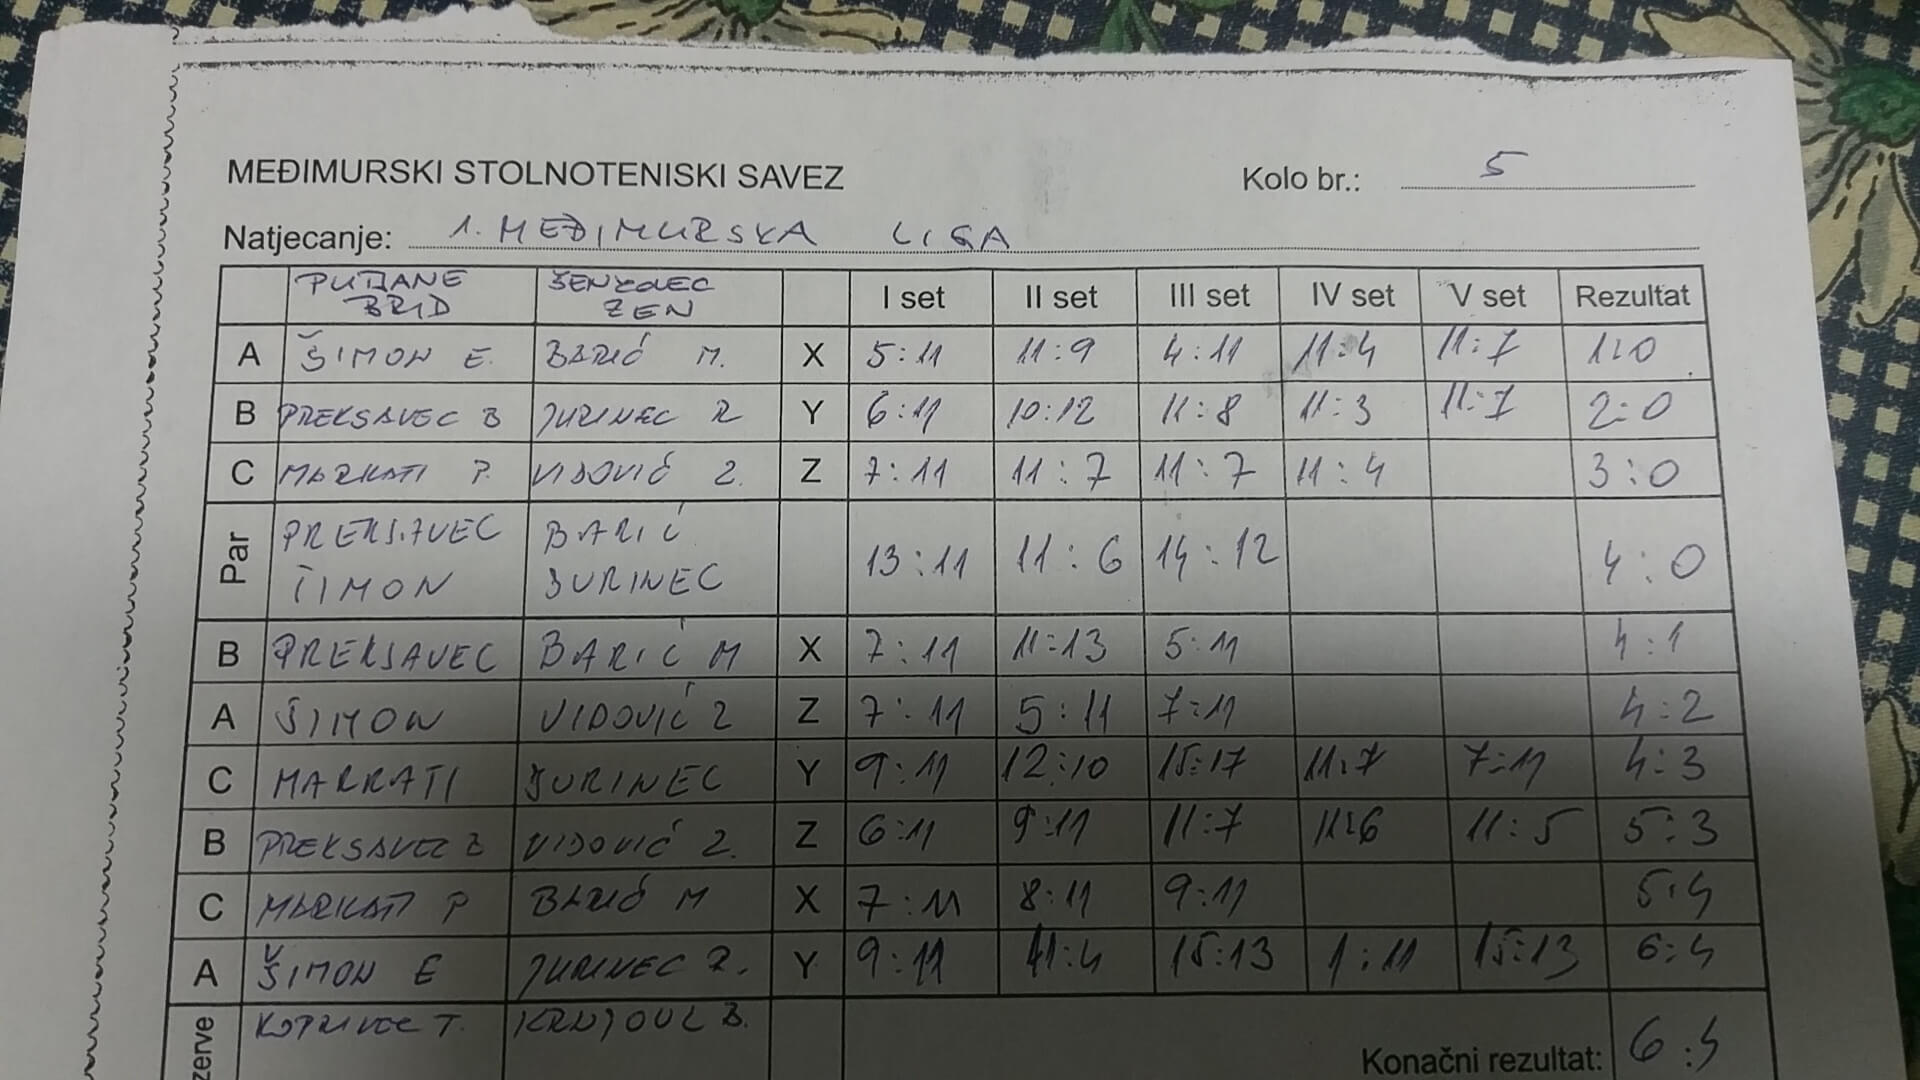 MEĐIMURSKI STOLNOTENISKI SAVEZ Kolo br.: 5
Natjecanje: 1. MEĐIMURSKA LIGA
PUŠĆANE ŠENKOVEC
BRID ZEN I set II set III set IV set V set Rezultat
A ŠIMON E. BARIĆ M. X 5:11 11:9 4:11 11:4 11:7 1:0
B PREKSAVEC B JURINEC R Y 6:11 10:12 11:8 11:3 11:7 2:0
C MARKATI P. VIDOVIĆ Z. Z 7:11 11:7 11:7 11:4 3:0
Par PREKSAVEC BARIĆ 13:11 11:6 14:12 4:0
ŠIMON JURINEC
B PREKSAVEC BARIĆ M X 7:11 11:13 5:11 4:1
A ŠIMON VIDOVIĆ Z Z 7:11 5:11 7:11 4:2
C MARKATI JURINEC Y 9:11 12:10 15:17 11:7 7:11 4:3
B PREKSAVEC B VIDOVIĆ Z. Z 6:11 9:11 11:7 11:6 11:5 5:3
C MARKATI P BARIĆ M X 7:11 8:11 9:11 5:4
A ŠIMON E JURINEC R. Y 9:11 11:4 15:13 1:11 15:13 6:4
zerve KOPRIVEC T.
Konačni rezultat: 6:4